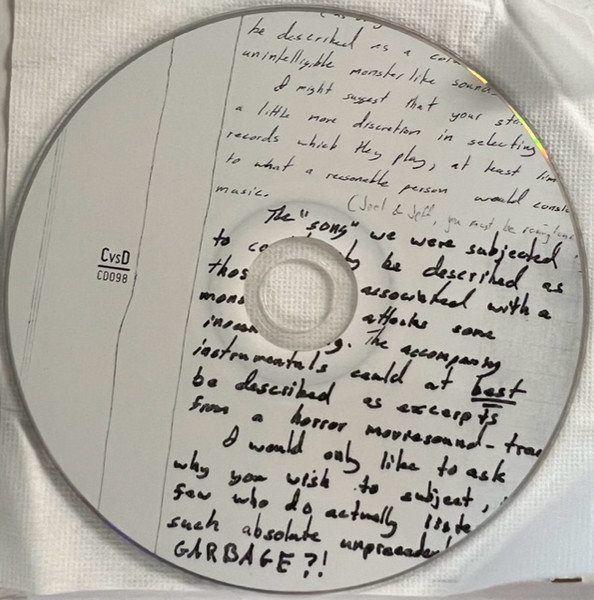 be described as a
unintelligible monster like
I might suggest that your
a little more discretion in selecting
records which they play, at least
to what a reasonable person would
music.
(Joel & Jeff, you must be
The "song" we were subjected
to be described as
associated with a
attacks some
The accompaning
instrumentals could at best
be described as excerpts
from a horror moviesound-
I would only like to ask
why you wish to subject,
few who do actually
such absolute
GARBAGE?!
CvsD
CD098